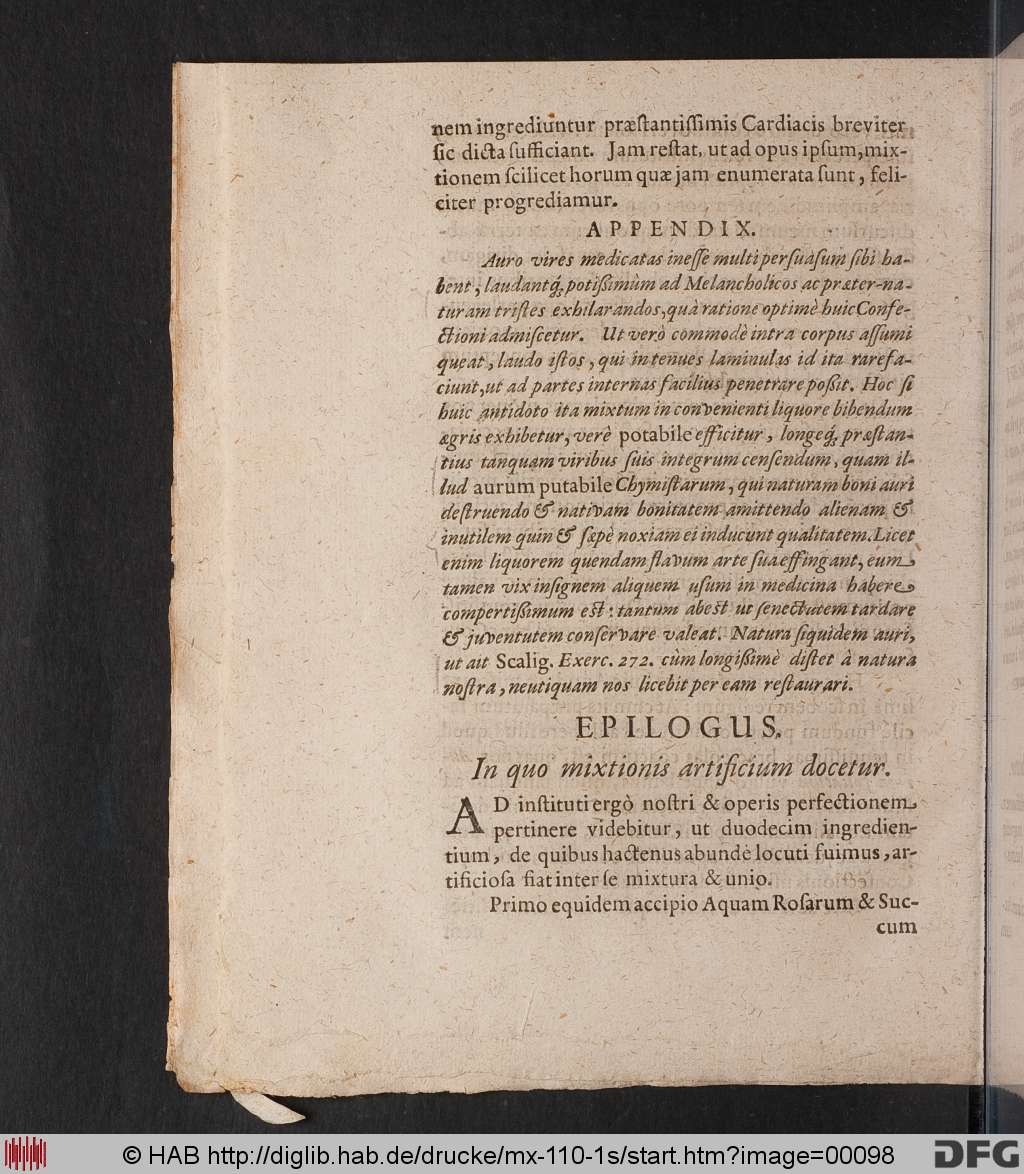 nem ingrediuntur præſtantiſſimis Cardiacis breviter
ſic dicta ſufficiant. Jam reſtat, ut ad opus ipſum, mix-
tionem ſcilicet horum quæ jam enumerata ſunt, feli-
citer progrediamur.
APPENDIX.
Auro vires medicatas ineſſe multi perſuaſum ſibi ha-
bent, laudantq́; potißimùm ad Melancholicos ac præter-na-
turam triſtes exhilarandos, quà ratione optimè huic Confe-
ctioni admiſcetur. Ut verò commodè intra corpus aſſumi
queat, laudo iſtos, qui in tenues laminulas id ita rarefa-
ciunt, ut ad partes internas facilius penetrare poßit. Hoc ſi
huic antidoto ita mixtum in convenienti liquore bibendum
ægris exhibetur, verè potabile efficitur, longeq́; præſtan-
tius tanquam viribus ſuis integrum cenſendum, quam il-
lud aurum putabile Chymiſtarum, qui naturam boni auri
deſtruendo & nativam bonitatem amittendo alienam &
inutilem quin & ſæpè noxiam ei inducunt qualitatem. Licet
enim liquorem quendam flavum arte ſua effingant, eum
tamen vix inſignem aliquem uſum in medicina habere
compertißimum eſt: tantum abeſt ut ſenectutem tardare
& juventutem conſervare valeat. Natura ſiquidem auri,
ut ait Scalig. Exerc. 272. cùm longißimè diſtet à natura
noſtra, neutiquam nos licebit per eam reſtaurari.
EPILOGUS.
In quo mixtionis artificium docetur.
AD inſtituti ergò noſtri & operis perfectionem
pertinere videbitur, ut duodecim ingredien-
tium, de quibus hactenus abundè locuti fuimus, ar-
tificioſa fiat inter ſe mixtura & unio.
Primo equidem accipio Aquam Roſarum & Suc-
cum
© HAB http://diglib.hab.de/drucke/mx-110-1s/start.htm?image=00098
DFG